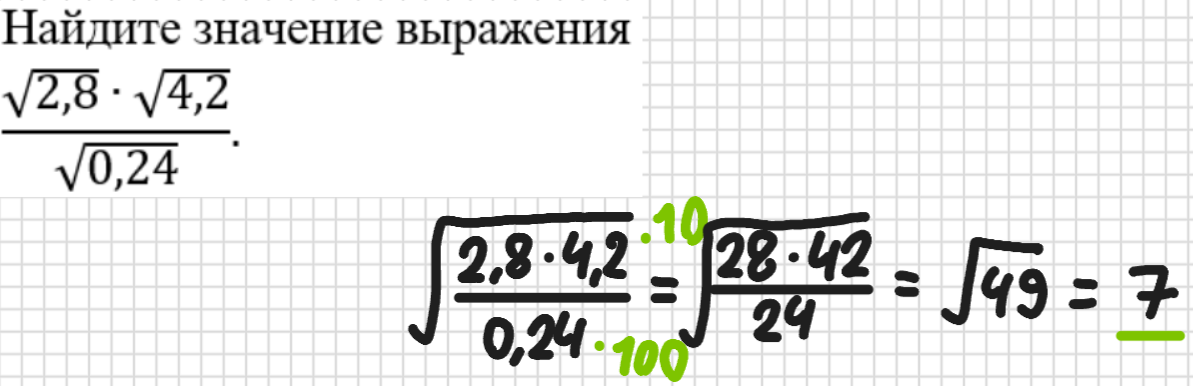 Найдите значение выражения
√2,8 · √4,2
√0,24 .
√(2,8 · 4,2 / 0,24) = √(28 · 42 / 24) = √49 = 7
· 10
· 100